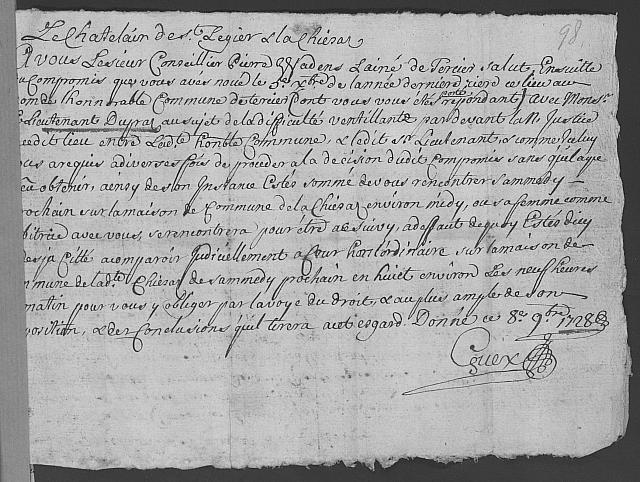 98
Le Chatelain de St Legier & la Chiésaz
A vous Le sieur Conseillier Pierre Wadens Lainé de Tercier Salut, Ensuitte
du Compromis que vous avés noué le 5e Xbre de l'année derniere riere ce lieu au
nom de l'honnorable Commune de tercier dont vous vous étes porté répondant avec Monsr
Lieutenant Dupraz au sujet de la difficulté ventillante par devant la N. Justice
dudit lieu entre Ladte honble Commune, & ledit Sr Lieutenant, & comme Iceluy
vous a requis a diverses fois de proceder a la decision dudit Compromis sans qu'il aye
peu obtenir, ainsy de son Instance Estes sommé de vous rencontrer sammedy
prochain sur la maison de Commune de la Chiésaz environ midy, ou sa femme comme
arbitrice avec vous, se rencontrera pour être a
a deffaut de quoy Estes d'icy
Citté a comparoir Judiciellement a Cour hon ordinaire sur la maison de
Commune de ladte Chiésaz de sammedy prochain en huict environ Les neuf heures
matin pour vous y obliger par la voye du droit, & au plus ample de son
position, & des Conclusions qu'il tirera a cet esgard. Donné ce 8e 9bre 1728
Guex